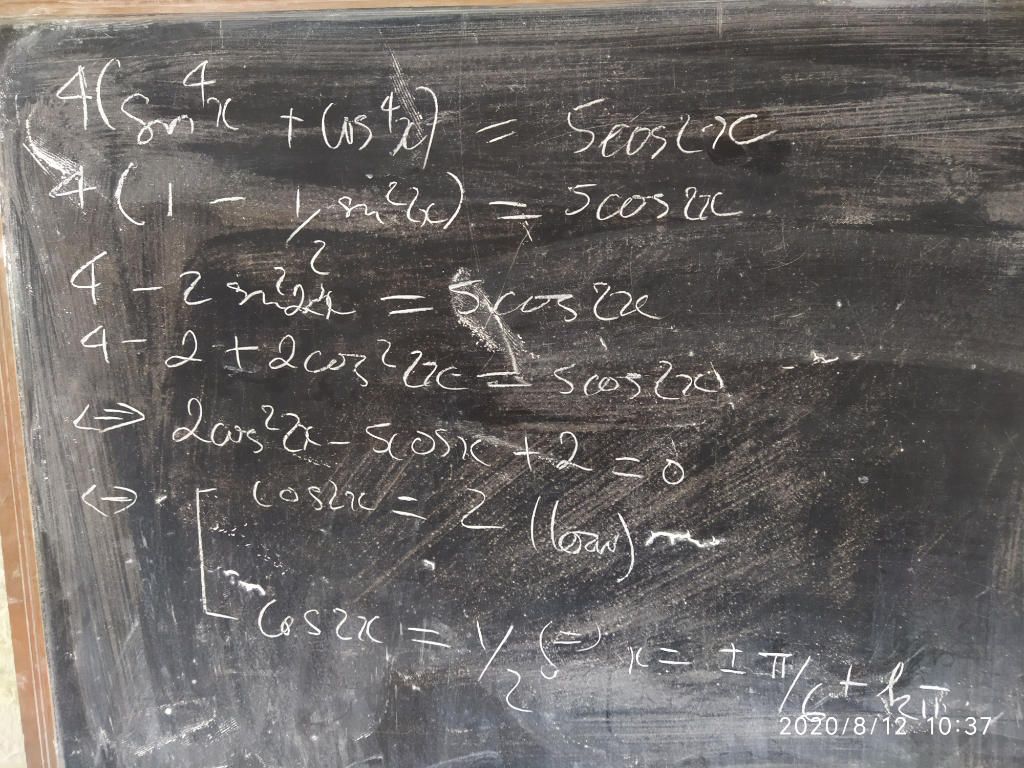 4(sin⁴x + cos⁴x) = 5cos2x
4(1 - 1/2 sin²2x) = 5cos2x
4 - 2 sin²2x = 5cos2x
4 - 2 + 2cos²2x = 5cos2x
<=> 2cos²2x - 5cosx + 2 = 0
<=> [ cos2x = 2 (loại)
cos2x = 1/2 <=> x = ± π/6 + kπ
2020/8/12 10:37